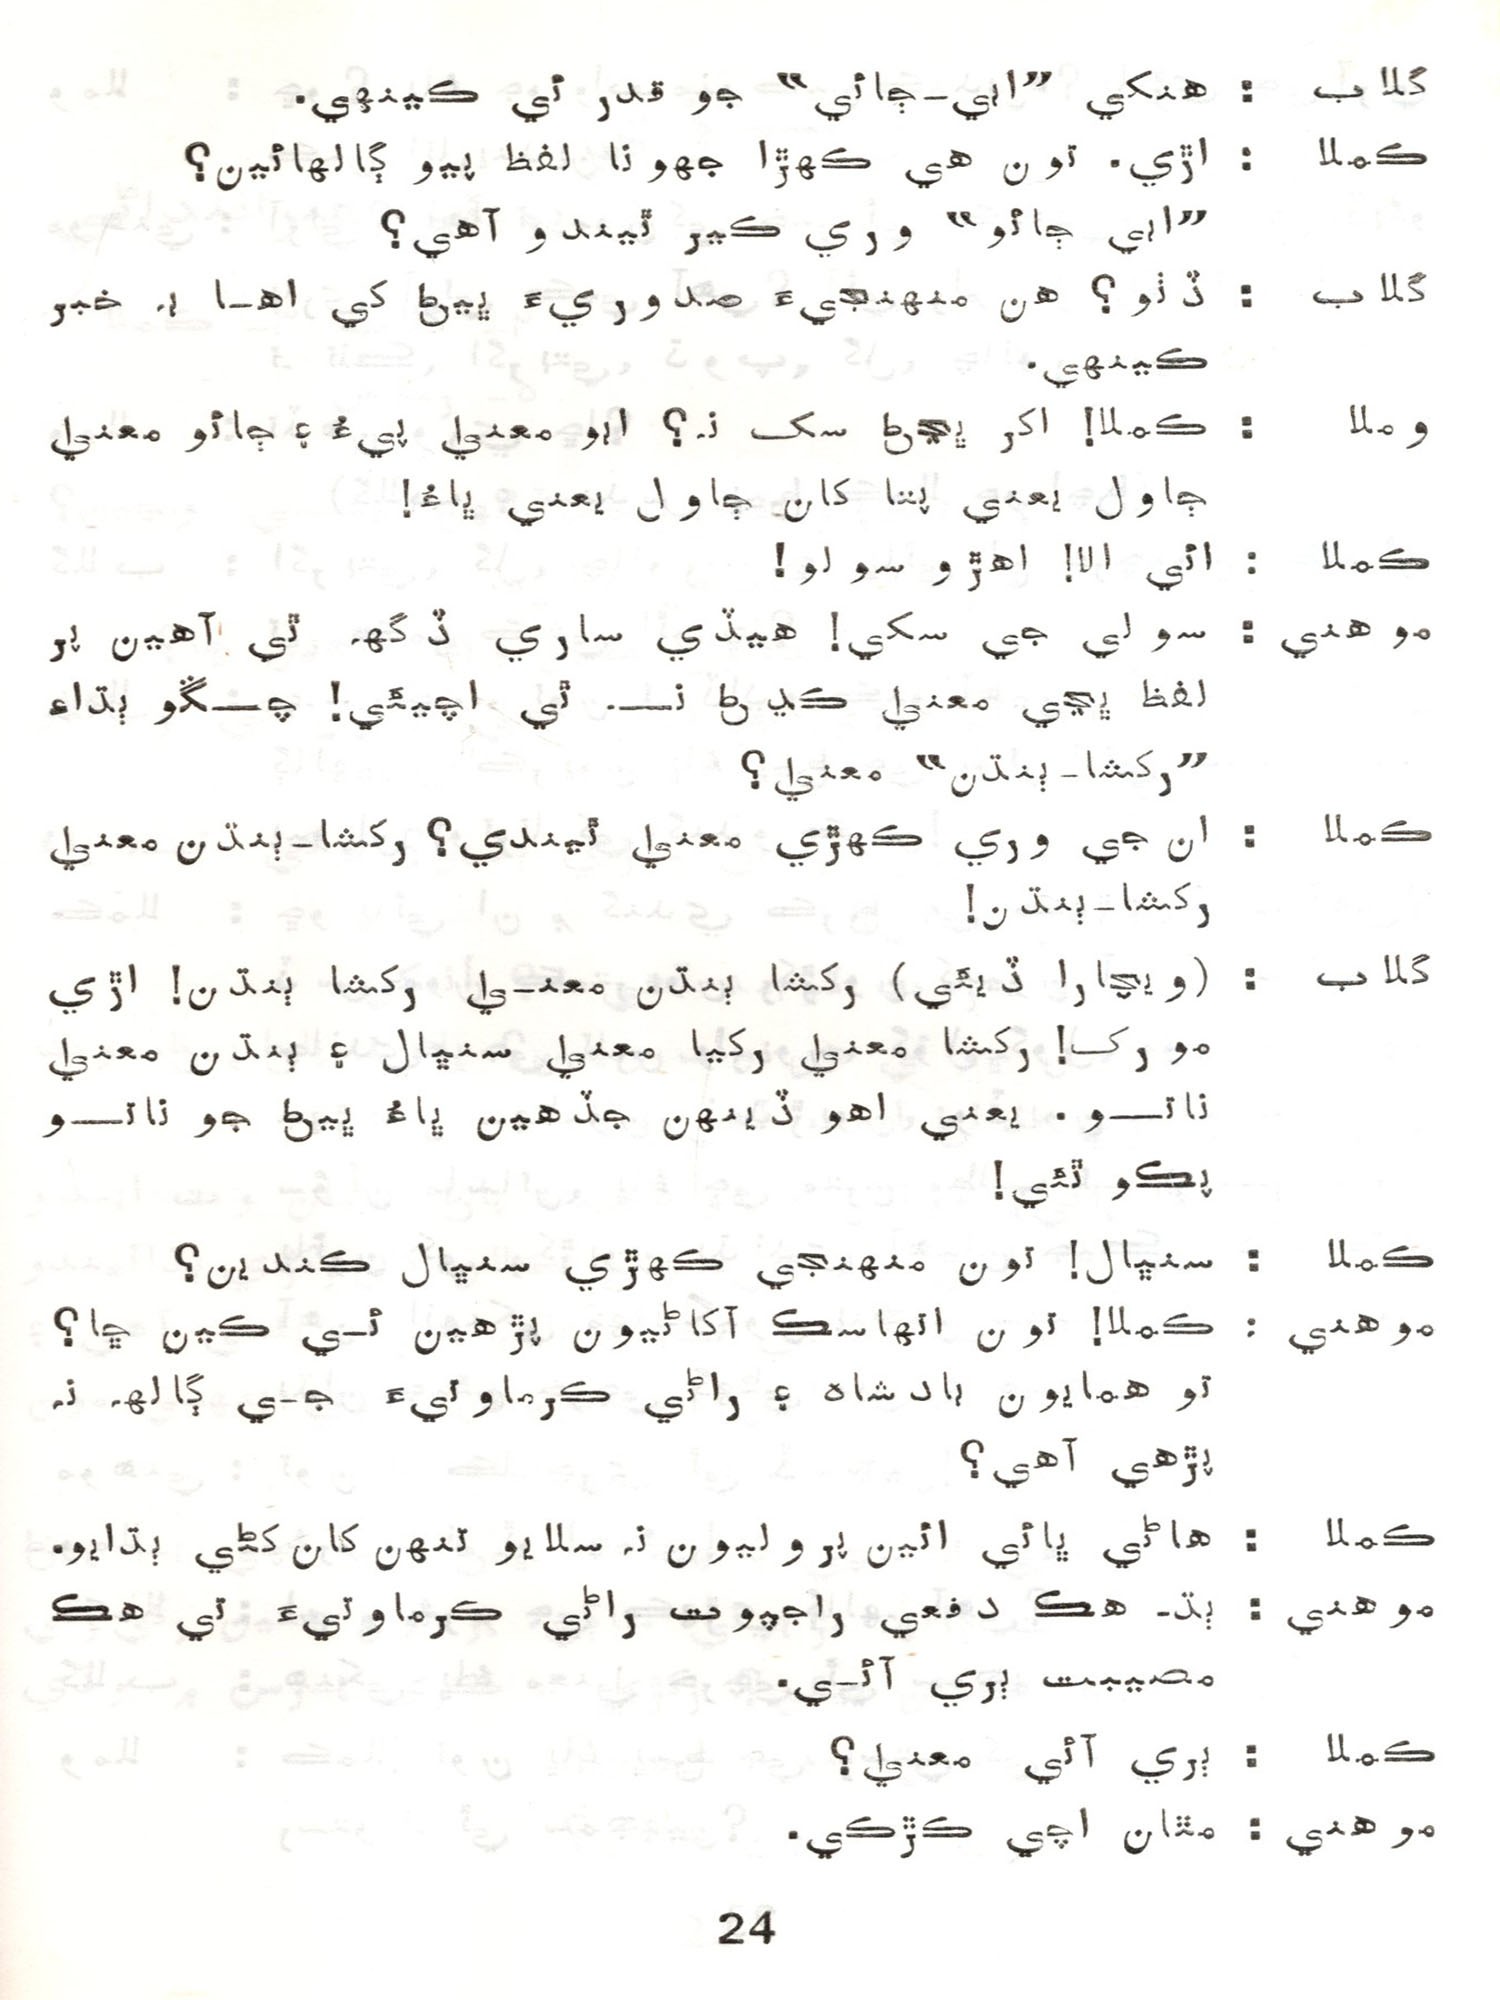 گلاب : هنکي ”ابي-ڄائي“ جو قدر ئي ڪينهي.
ڪملا : اڙي. تون هي ڪهڙا جهونا لفظ پيو ڳالهائين؟
”ابي ڄائو“ وري ڪير ٿيندو آهي؟
گلاب : ڏٺو؟ هن منهنجيءَ صدوريءَ ڀيڻ کي اها بہ خبر
ڪينهي.
وملا : ڪملا! اکر ڀڃڻ سک نہ؟ ابو معنيٰ پيءُ ۽ ڄائو معنيٰ
ڄاول يعني پتا کان ڄاول يعني ڀاءُ!
ڪملا : ائي الا! اهڙو سولو!
موهني : سولي جي سکي! هيڏي ساري ڏگهہ ٿي آهين پر
لفظ ڀڃي معنيٰ ڪڍڻ نہ ٿي اچيئي! چڱو ٻڌاء
”رکشا-ٻنڌن“ معنيٰ؟
ڪملا : ان جي وري ڪهڙي معنيٰ ٿيندي؟ رکشا-ٻنڌن معنيٰ
رکشا-ٻنڌن!
گلاب : (ويچارا ڏيئي) رکشا ٻنڌن معنيٰ رکشا ٻنڌن! اڙي
مورک! رکشا معنيٰ رکيا معنيٰ سنڀال ۽ ٻنڌن معنيٰ
ناتو. يعني اهو ڏينهن جڏهين ڀاءُ ڀيڻ جو ناتو
پڪو ٿئي!
ڪملا : سنڀال! تون منهنجي ڪهڙي سنڀال ڪندين؟
موهني : ڪملا! تون اتهاسڪ آکاڻيون پڙهين ئي ڪين ڇا؟
تو همايون بادشاه ۽ راڻي ڪرماوتيءَ جي ڳالهہ نہ
پڙهي آهي؟
ڪملا : هاڻي ڀائي ائين پروليون نہ سلايو تنهن کان کڻي ٻڌايو.
موهني : ٻڌ- هڪ دفعي راجپوت راڻي ڪرماوتيءَ تي هڪ
مصيبت ٻري آئي.
ڪملا : ٻري آئي معنيٰ؟
موهني : مٿان اچي ڪڙڪي.
24